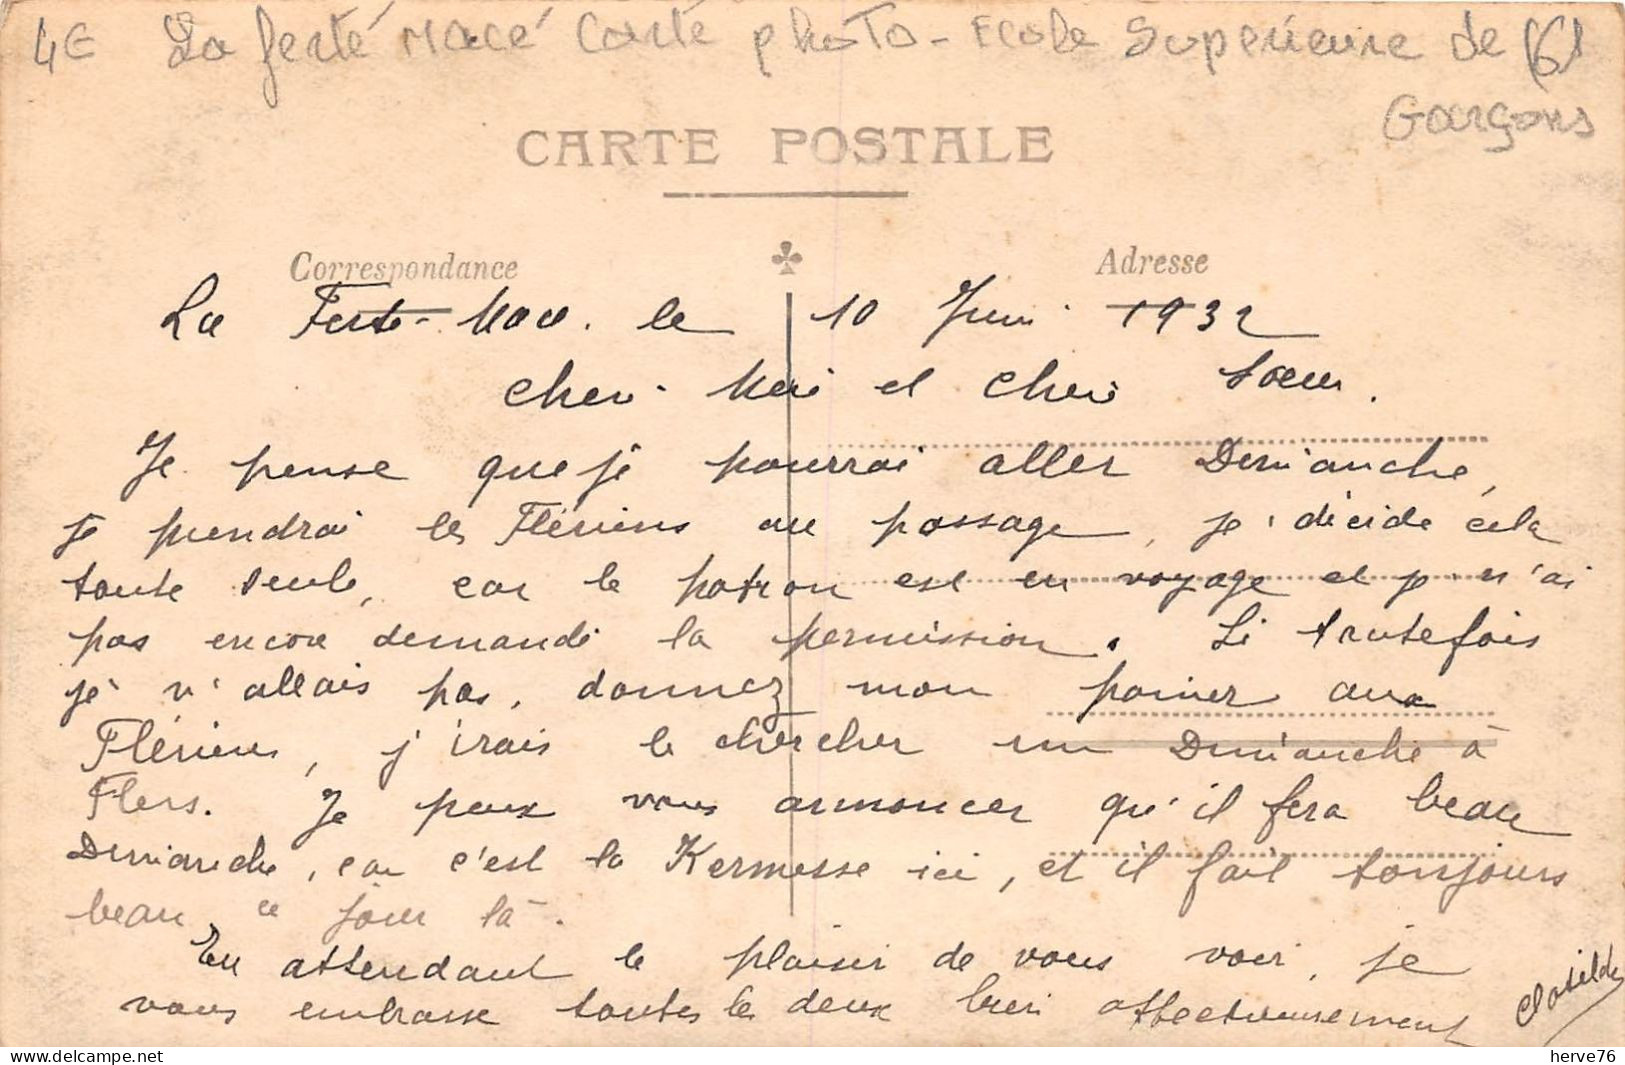 4€ La ferté Macé Carte photo - Ecole Supérieure de (61
Garçons
CARTE POSTALE
Correspondance
Adresse
La Ferté-Macé. le 10 Juin 1932
Chère et Chère Soeur.
Je pense que je pourrai aller Dimanche,
je prendrai les Flériens au passage, je décide cela
toute seule, car le patron est en voyage et je n'ai
pas encore demandé la permission. Si toutefois
je n'allais pas, donnez mon panier aux
Flériens, j'irais le chercher un Dimanche à
Flers. Je peux vous annoncer qu'il fera beau
Dimanche, car c'est la Kermesse ici, et il fait toujours
beau ce jour là.
En attendant le plaisir de vous voir, je
vous embrasse toutes les deux bien affectueusement
Clotilde
herve76